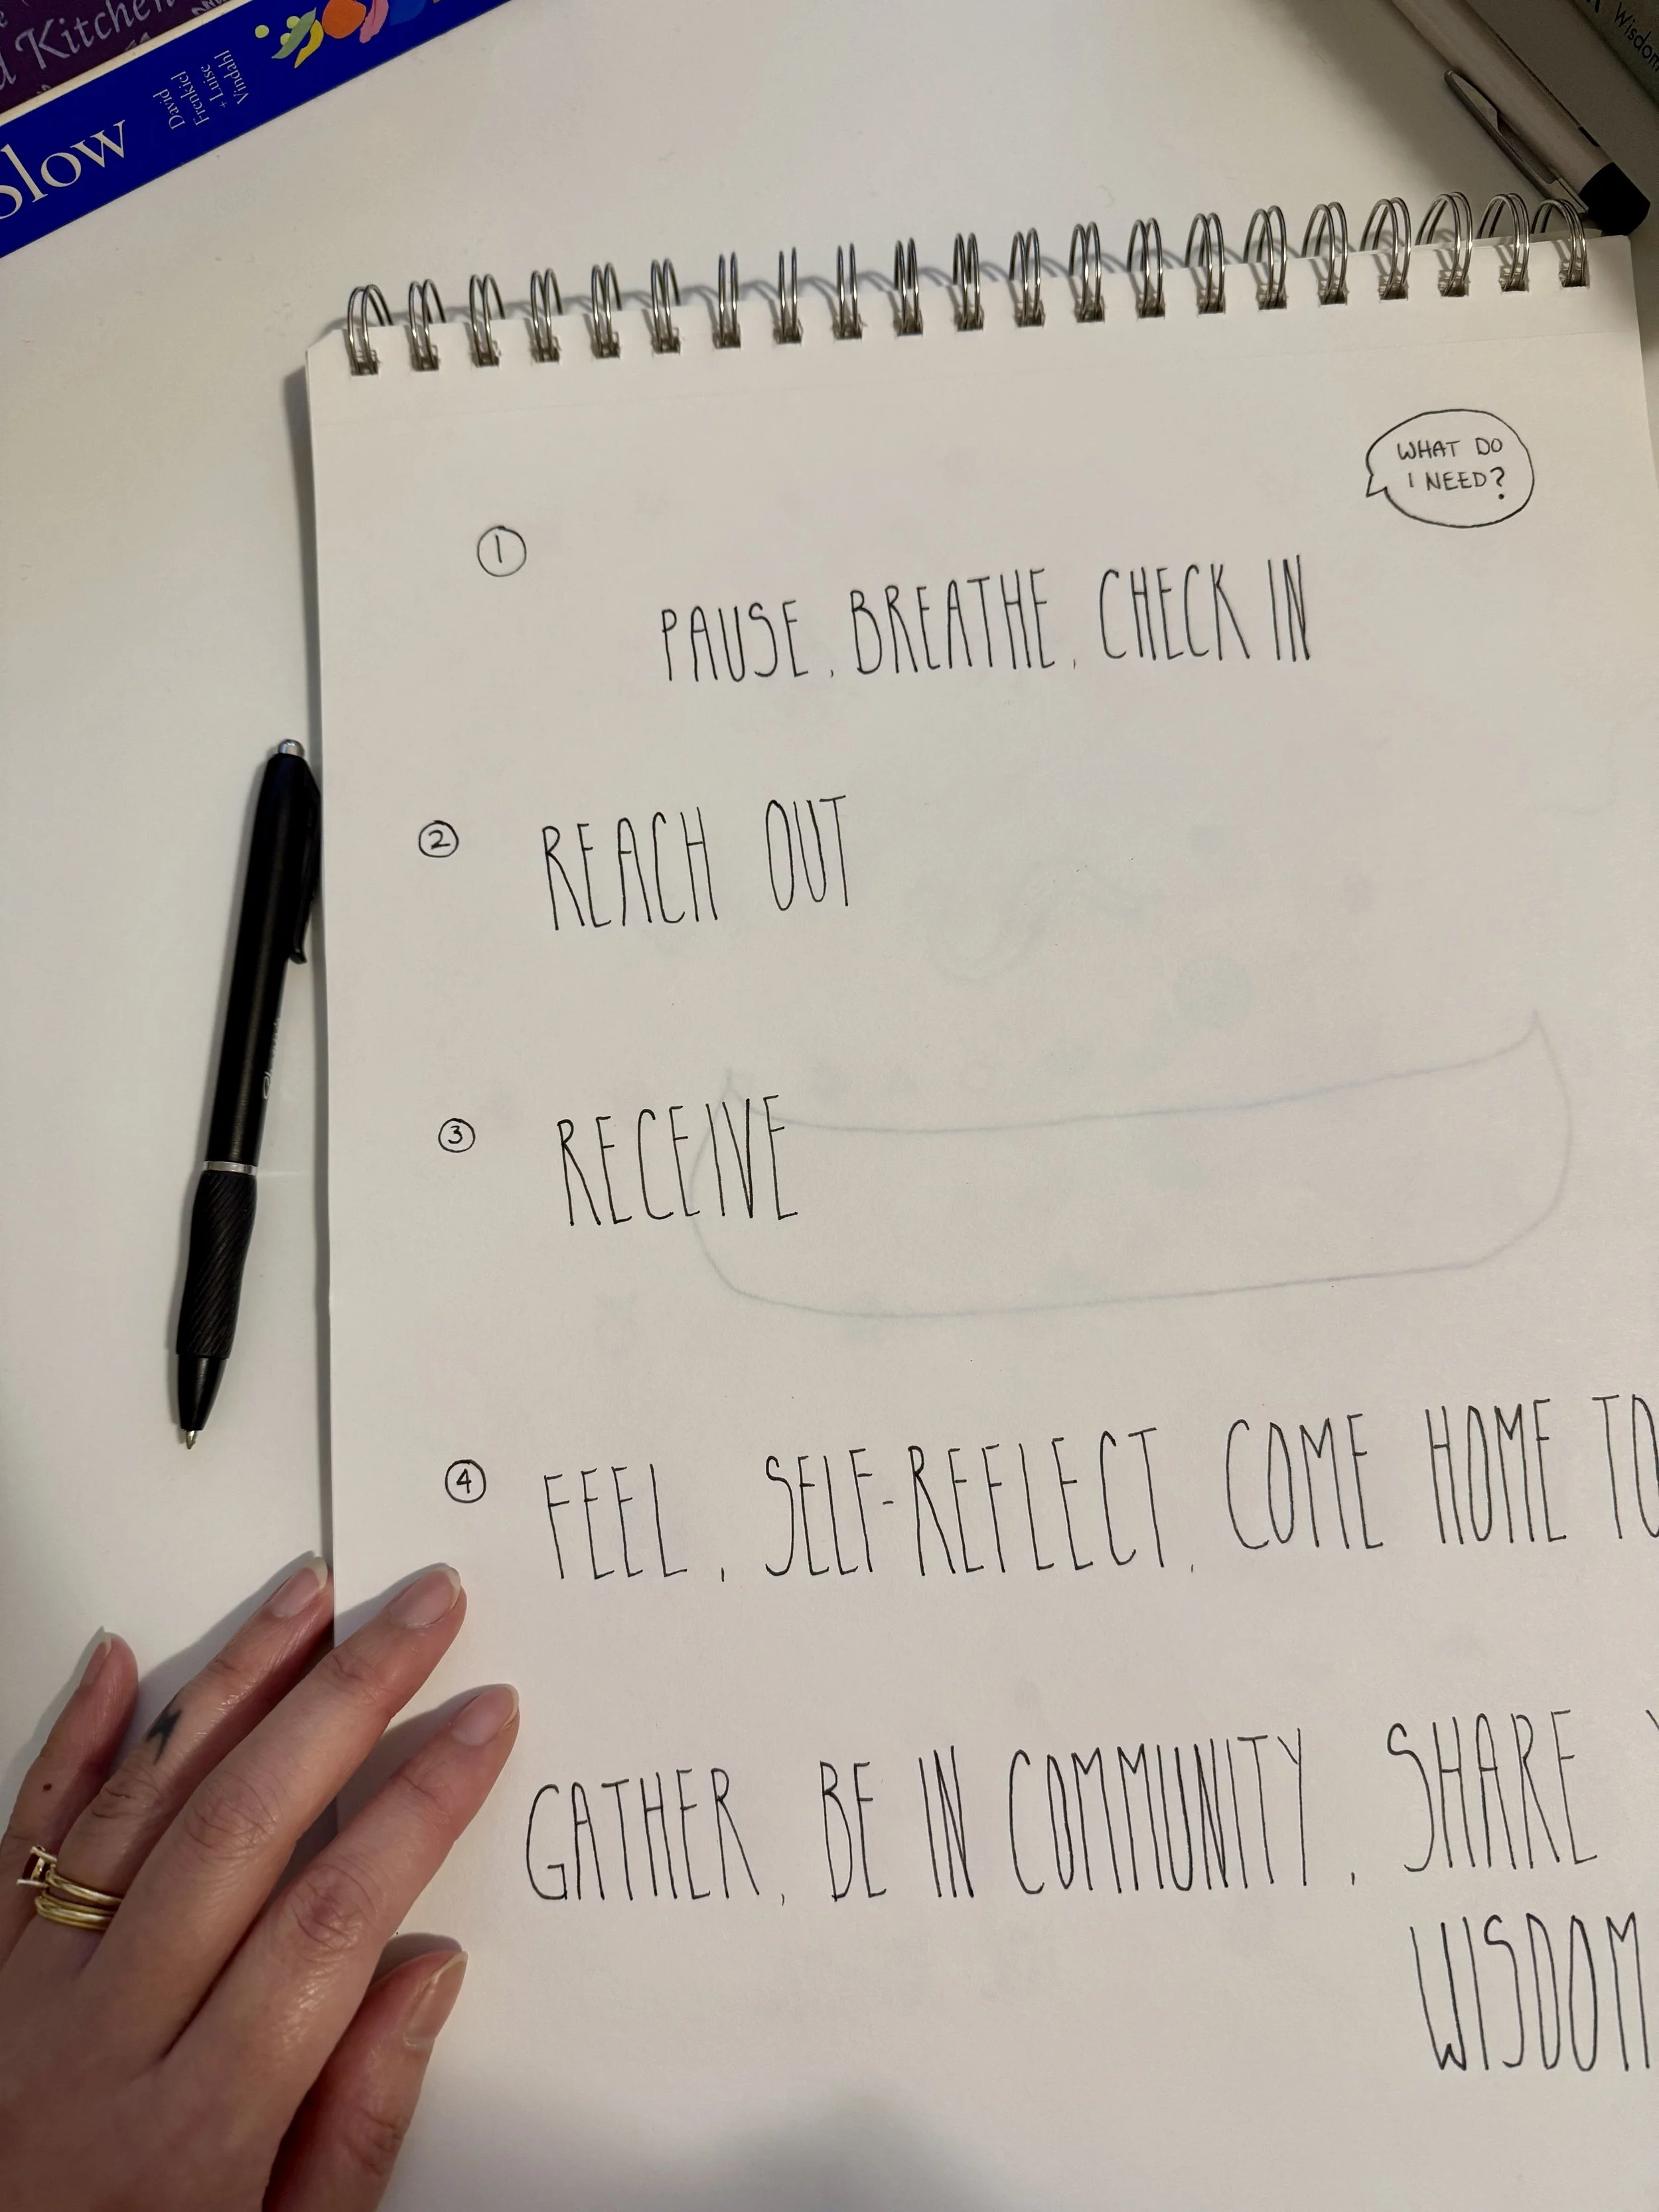 Kitchen
Slow
David
Frenkiel
+ Luise
Vindahl
Wisdom
WHAT DO
I NEED?
1
PAUSE. BREATHE. CHECK IN
2 REACH OUT
3 RECEIVE
4 FEEL. SELF-REFLECT. COME HOME TO
GATHER. BE IN COMMUNITY. SHARE
WISDOM